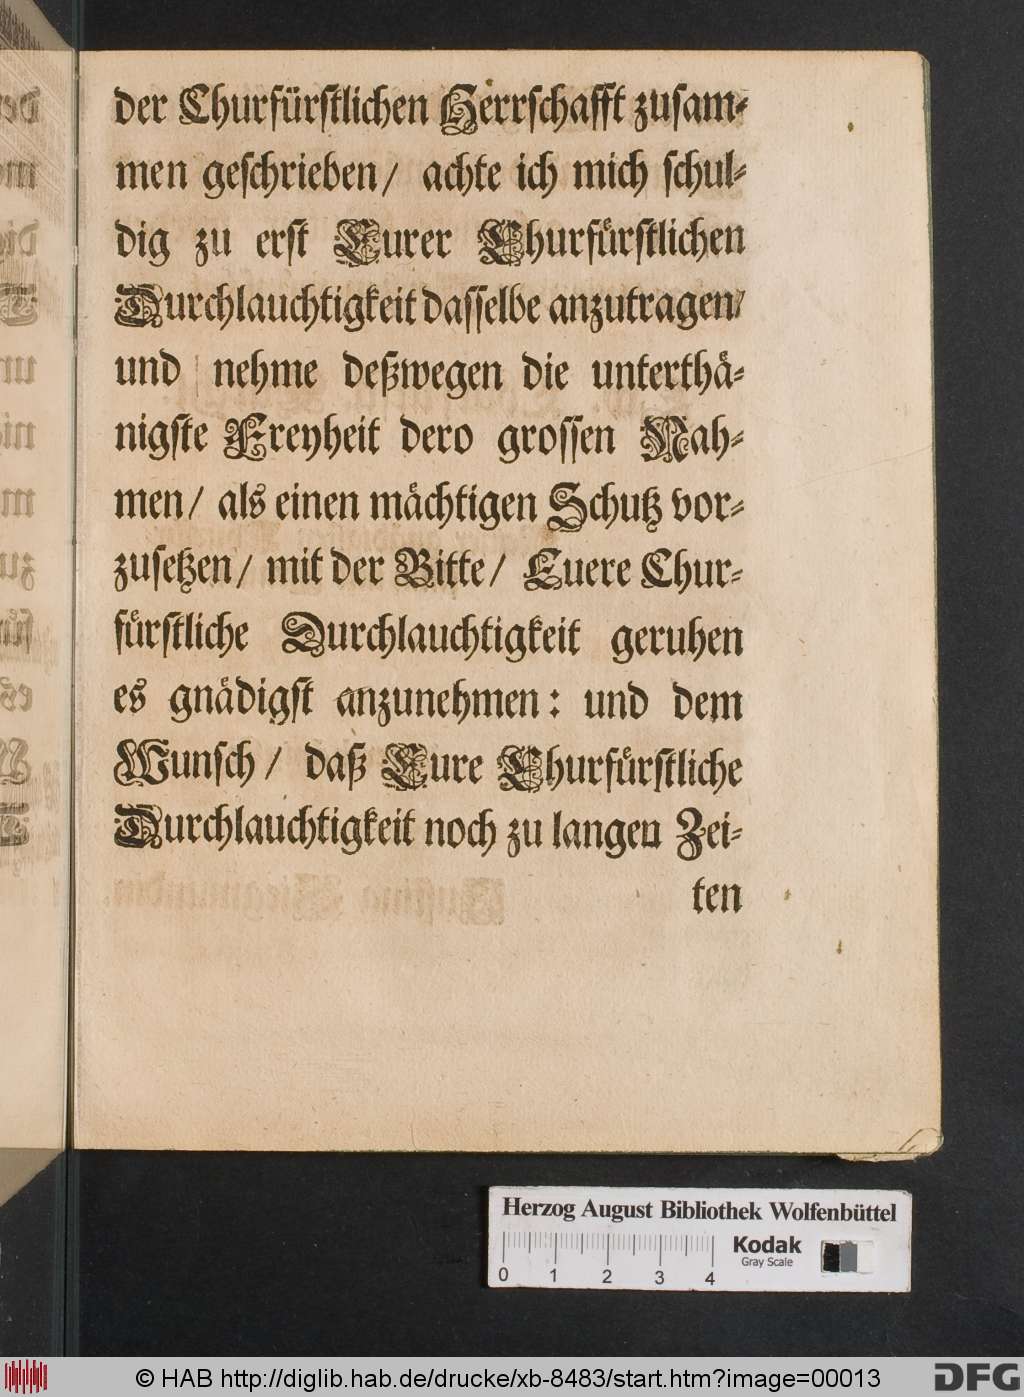 der Churfürstlichen Herrschafft zusam-
men geschrieben/ achte ich mich schul-
dig zu erst Eurer Churfürstlichen
Durchlauchtigkeit dasselbe anzutragen/
und nehme deßwegen die unterthä-
nigste Freyheit dero grossen Nah-
men/ als einen mächtigen Schutz vor-
zusetzen/ mit der Bitte/ Euere Chur-
fürstliche Durchlauchtigkeit geruhen
es gnädigst anzunehmen: und dem
Wunsch/ daß Eure Churfürstliche
Durchlauchtigkeit noch zu langen Zei-
ten
Herzog August Bibliothek Wolfenbüttel
Kodak
Gray Scale
0 1 2 3 4
© HAB http://diglib.hab.de/drucke/xb-8483/start.htm?image=00013
DFG